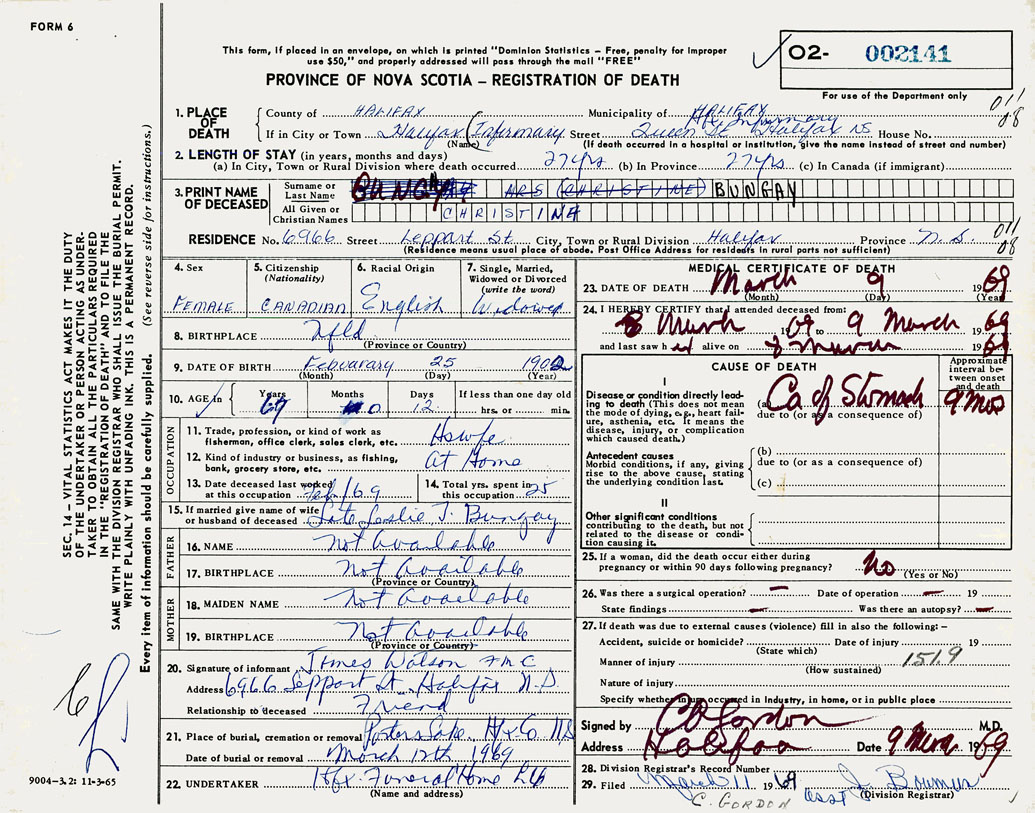 FORM 6
This form, if placed in an envelope, on which is printed "Dominion Statistics – Free, penalty for improper
use $50," and properly addressed will pass through the mail "FREE"
PROVINCE OF NOVA SCOTIA – REGISTRATION OF DEATH
02- 002141
For use of the Department only
011
08
1. PLACE OF DEATH
County of HALIFAX Municipality of HALIFAX
Infirmary
If in City or Town Halifax (Infirmary Street Queen St Halifax NS House No.
(Name) (If death occurred in a hospital or institution, give the name instead of street and number)
2. LENGTH OF STAY (in years, months and days)
(a) In City, Town or Rural Division where death occurred 27 yrs (b) In Province 27 yrs (c) In Canada (if immigrant)
3. PRINT NAME OF DECEASED
Surname or Last Name BUNGAY MRS (CHRISTINE) BUNGAY
All Given or Christian Names CHRISTINE
RESIDENCE No. 6966 Street Leppart St City, Town or Rural Division Halifax Province N.S.
(Residence means usual place of abode. Post Office Address for residents in rural parts not sufficient)
011
08
4. Sex FEMALE
5. Citizenship (Nationality) CANADIAN
6. Racial Origin English
7. Single, Married, Widowed or Divorced (write the word) Widowed
8. BIRTHPLACE Nfld
(Province or Country)
9. DATE OF BIRTH Febuarary 25 1902
(Month) (Day) (Year)
10. AGE in Years 67 Months 0 Days 12 If less than one day old
hrs. or min.
OCCUPATION
11. Trade, profession, or kind of work as fisherman, office clerk, sales clerk, etc. Hswfe
12. Kind of industry or business, as fishing, bank, grocery store, etc. At Home
13. Date deceased last worked at this occupation Feb/69
14. Total yrs. spent in this occupation 25
15. If married give name of wife or husband of deceased Late Leslie J. Bungay
FATHER
16. NAME Not Available
17. BIRTHPLACE Not Available
(Province or Country)
MOTHER
18. MAIDEN NAME Not Available
19. BIRTHPLACE Not Available
(Province or Country)
20. Signature of informant James Watson
Address 6966 Leppart St. Halifax N.S.
Relationship to deceased Friend
21. Place of burial, cremation or removal Porters Lake. Hx Co. NS
Date of burial or removal March 12th 1969
22. UNDERTAKER Hfx. Funeral Home Ltd
(Name and address)
MEDICAL CERTIFICATE OF DEATH
23. DATE OF DEATH March 9 1969
(Month) (Day) (Year)
24. I HEREBY CERTIFY that I attended deceased from:
8 March 1969 to 9 March 1969
and last saw her alive on 8 March 1969
CAUSE OF DEATH
Approximate interval between onset and death
I
Disease or condition directly leading to death (This does not mean the mode of dying, e.g., heart failure, asthenia, etc. It means the disease, injury, or complication which caused death.)
(a) Ca of Stomach 9 mos
due to (or as a consequence of)
Antecedent causes
Morbid conditions, if any, giving rise to the above cause, stating the underlying condition last.
(b)
due to (or as a consequence of)
(c)
II
Other significant conditions
contributing to the death, but not related to the disease or condition causing it.
25. If a woman, did the death occur either during pregnancy or within 90 days following pregnancy? No
(Yes or No)
26. Was there a surgical operation? — Date of operation — 19
State findings — Was there an autopsy? —
27. If death was due to external causes (violence) fill in also the following: –
Accident, suicide or homicide? Date of injury 19
(State which)
Manner of injury 151.9
(How sustained)
Nature of injury
Specify whether injury occurred in industry, in home, or in public place
Signed by C D Gordon M.D.
Address Halifax Date 9 Mar 1969
28. Division Registrar's Record Number
29. Filed March 11 1969 asst J. Bowmer
(Division Registrar)
C. GORDON
SEC. 14 – VITAL STATISTICS ACT MAKES IT THE DUTY
OF THE UNDERTAKER OR PERSON ACTING AS UNDER-
TAKER TO OBTAIN ALL THE PARTICULARS REQUIRED
IN THE "REGISTRATION OF DEATH" AND TO FILE THE
SAME WITH THE DIVISION REGISTRAR WHO SHALL ISSUE THE BURIAL PERMIT.
WRITE PLAINLY WITH UNFADING INK. THIS IS A PERMANENT RECORD.
Every item of information should be carefully supplied. (See reverse side for instructions.)
9004-3.2: 11-3-65